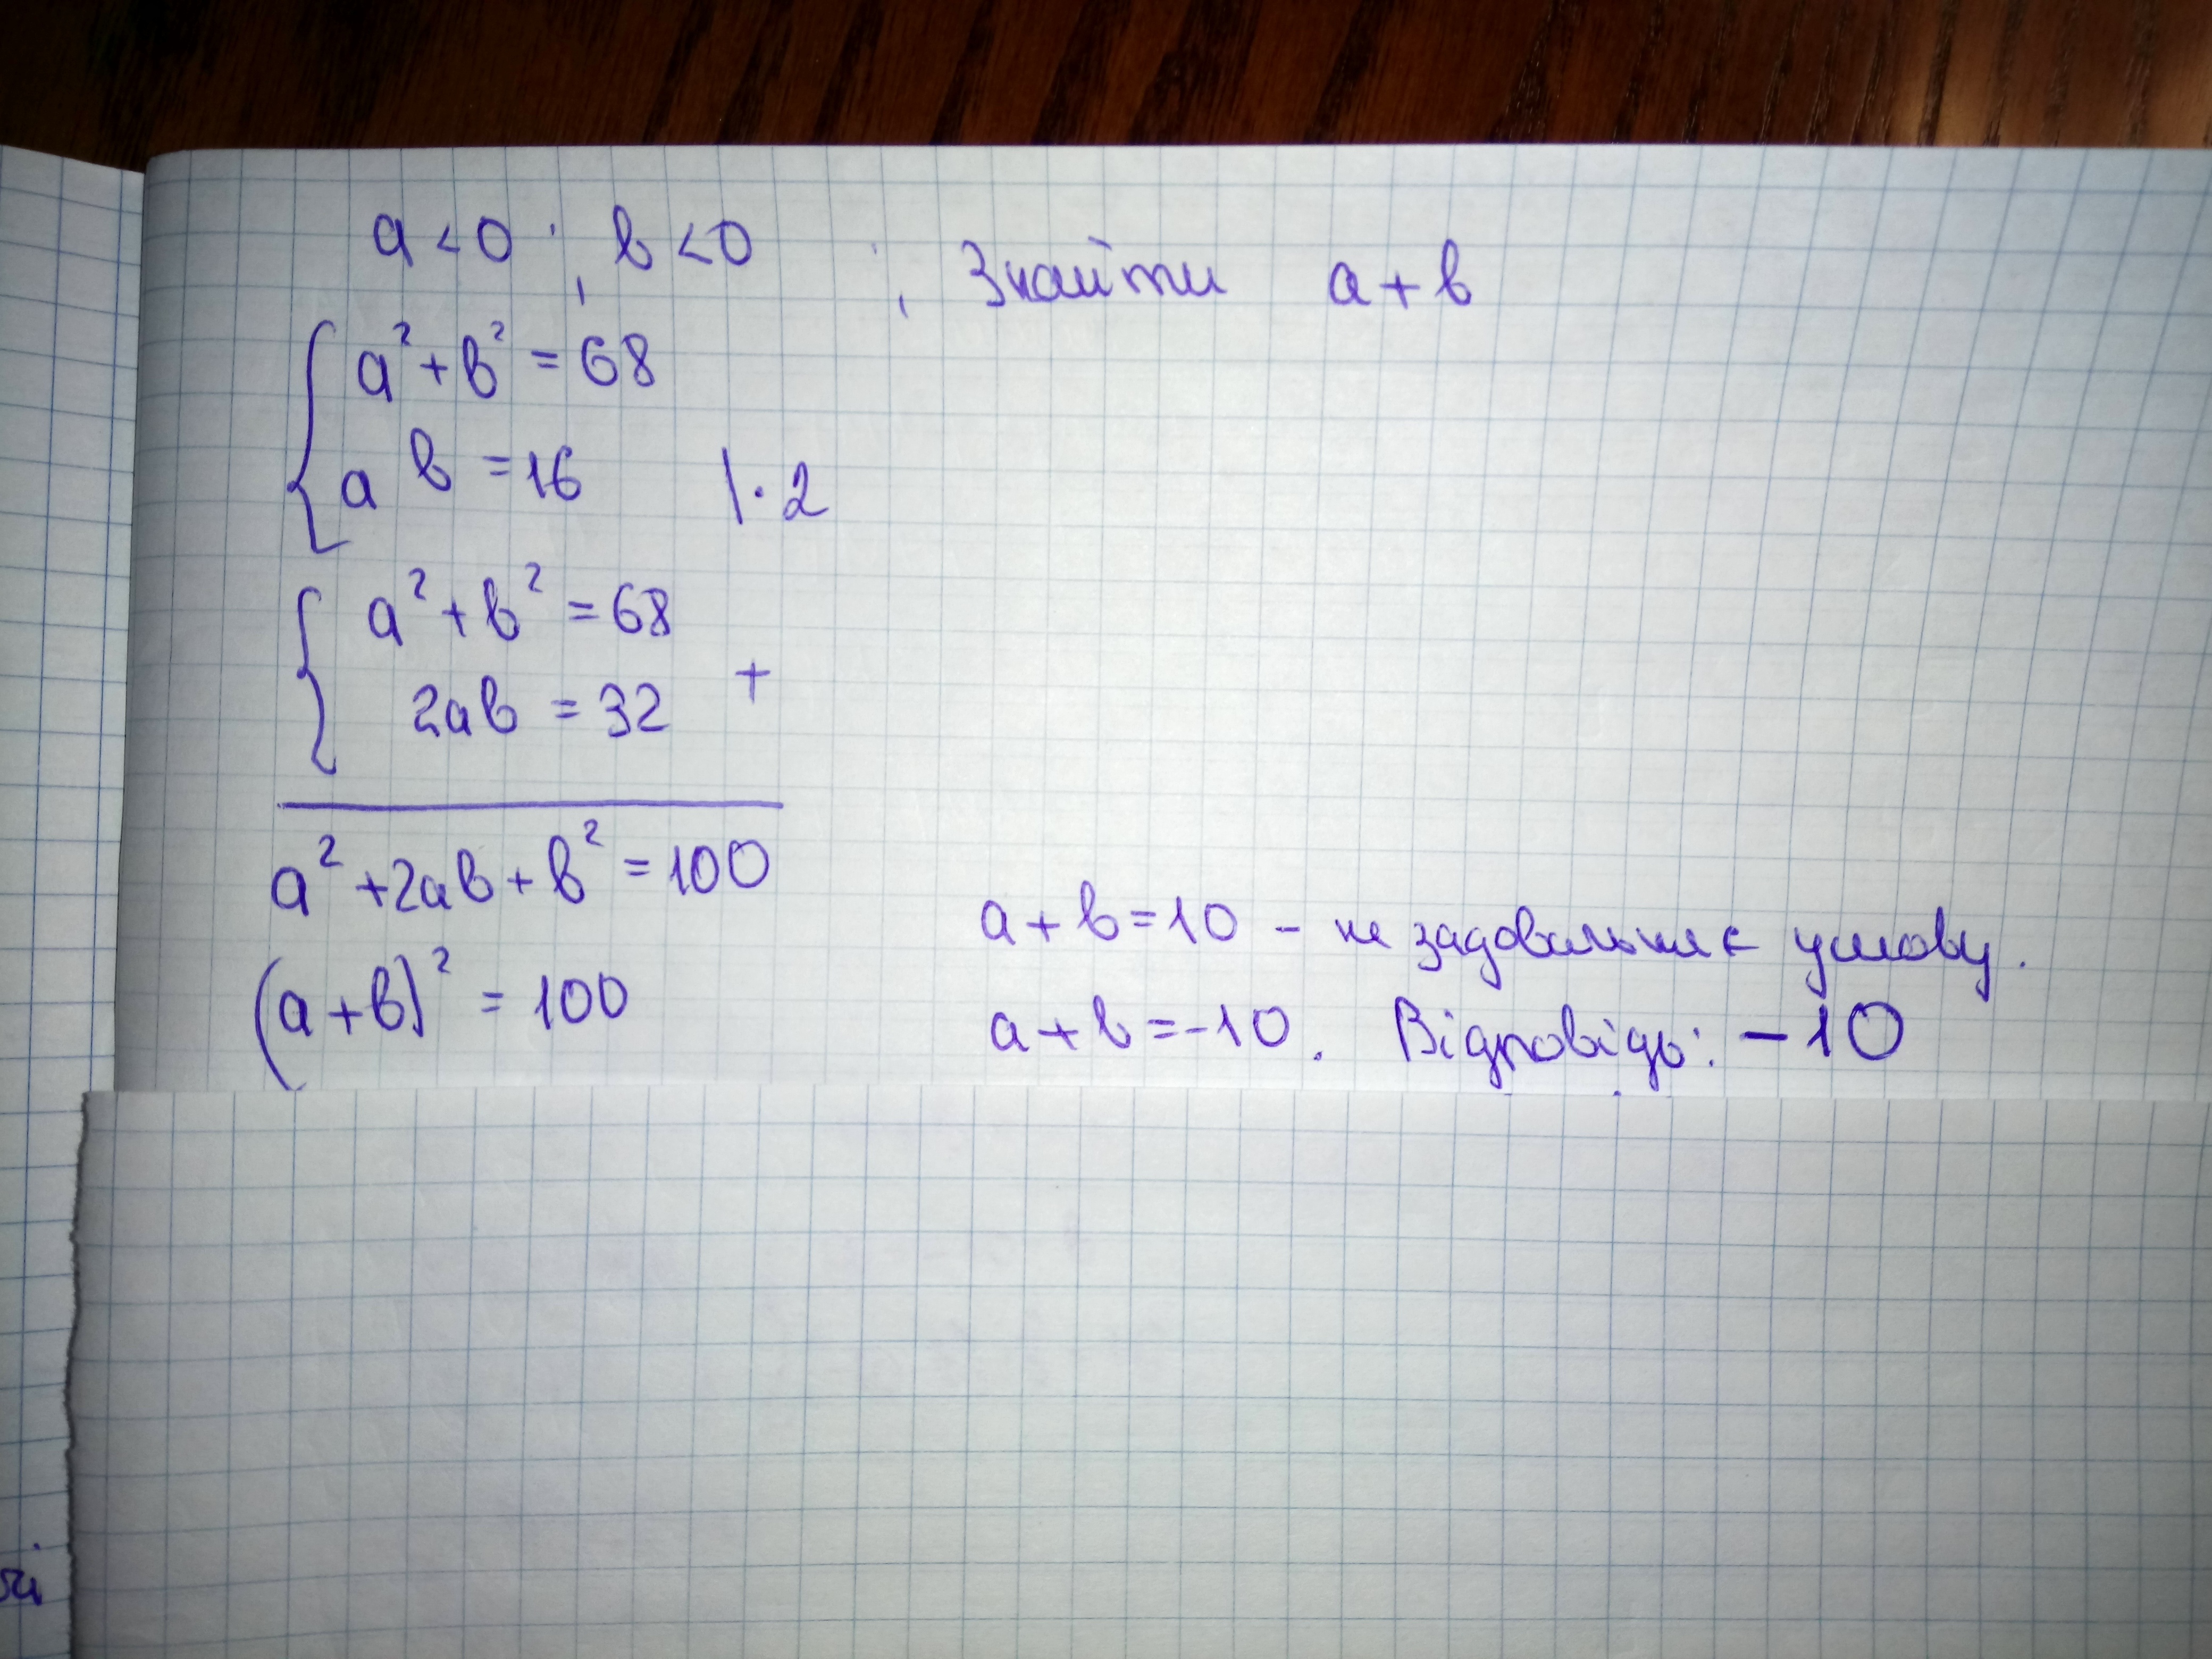 a < 0 ; b < 0 ; Знайти a + b
a² + b² = 68
a b = 16 | · 2
a² + b² = 68
2ab = 32 +
a² + 2ab + b² = 100
(a + b)² = 100
a + b = 10 – не задовольняє умову.
a + b = -10. Відповідь: -10